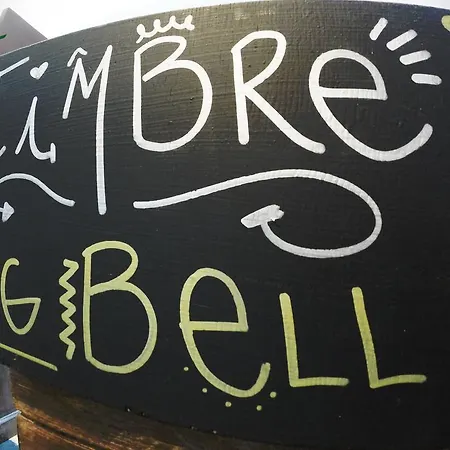 TiMBRe
G BeLL